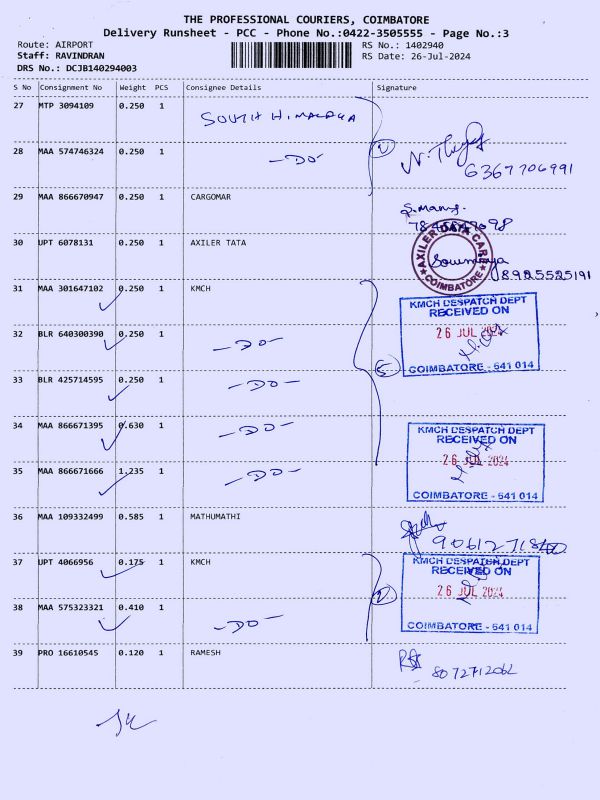 THE PROFESSIONAL COURIERS, COIMBATORE
Delivery Runsheet - PCC - Phone No.:0422-3505555 - Page No.:3
Route: AIRPORT RS No.: 1402940
Staff: RAVINDRAN RS Date: 26-Jul-2024
DRS No.: DCJB140294003
S No Consignment No Weight PCS Consignee Details Signature
27 MTP 3094109 0.250 1 SOUTH HIMALAYA
28 MAA 574746324 0.250 1 -DO- 6367706991
29 MAA 866670947 0.250 1 CARGOMAR
30 UPT 6078131 0.250 1 AXILER TATA
AXILER DATA CARE
COIMBATORE
Sowmiya
8925525191
31 MAA 301647102 0.250 1 KMCH
KMCH DESPATCH DEPT
RECEIVED ON
26 JUL 2024
COIMBATORE - 641 014
32 BLR 640300390 0.250 1 -DO-
33 BLR 425714595 0.250 1 -DO-
34 MAA 866671395 0.630 1 -DO-
KMCH DESPATCH DEPT
RECEIVED ON
26 JUL 2024
COIMBATORE - 641 014
35 MAA 866671666 1.235 1 -DO-
36 MAA 109332499 0.585 1 MATHUMATHI
37 UPT 4066956 0.175 1 KMCH
KMCH DESPATCH DEPT
RECEIVED ON
26 JUL 2024
COIMBATORE - 641 014
38 MAA 575323321 0.410 1 -DO-
39 PRO 16610545 0.120 1 RAMESH
8072712062